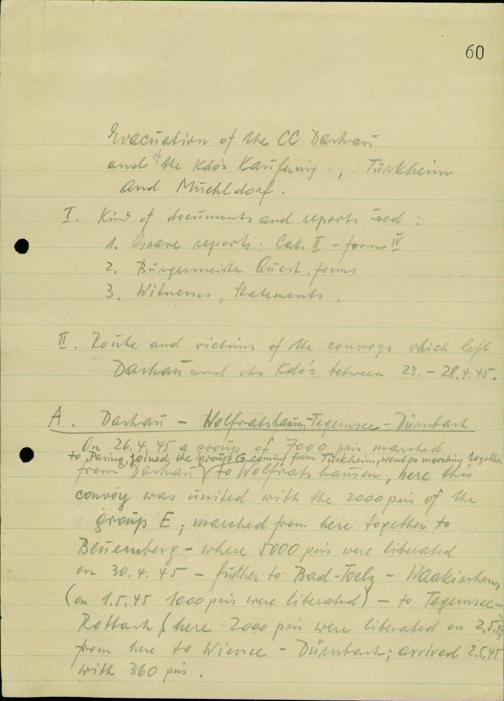 60
Evacuation of the CC Dachau
and of the Kdo's Kaufering, Türkheim
and Muehldorf.
I. Kind of documents and reports used:
1. Grave reports: Cat. II - forms IV
2. Bürgermeister Quest. forms
3. Witnesses, Statements.
II. Route and victims of the convoys which left
Dachau and its Kdo's between 23. - 28.4.45.
A. Dachau - Wolfratshausen, Tegernsee - Dürnbach
On 26.4.45 a group of 7000 pris marched
to Pasing, joined the group G coming from Türkheim, went on marching together
from Dachau to Wolfratshausen, here this
convoy was united with the 2000 pris of the
group E, marched from here together to
Beuerberg - where 5000 pris were liberated
on 30.4.45 - further to Bad-Toelz - Waakirchen,
(on 1.5.45 1000 pris were liberated) - to Tegernsee -
Rottach (here 2000 pris were liberated on 2.5.45
from here to Wiessee - Dürnbach; arrived 2.5.45
with 360 pris.